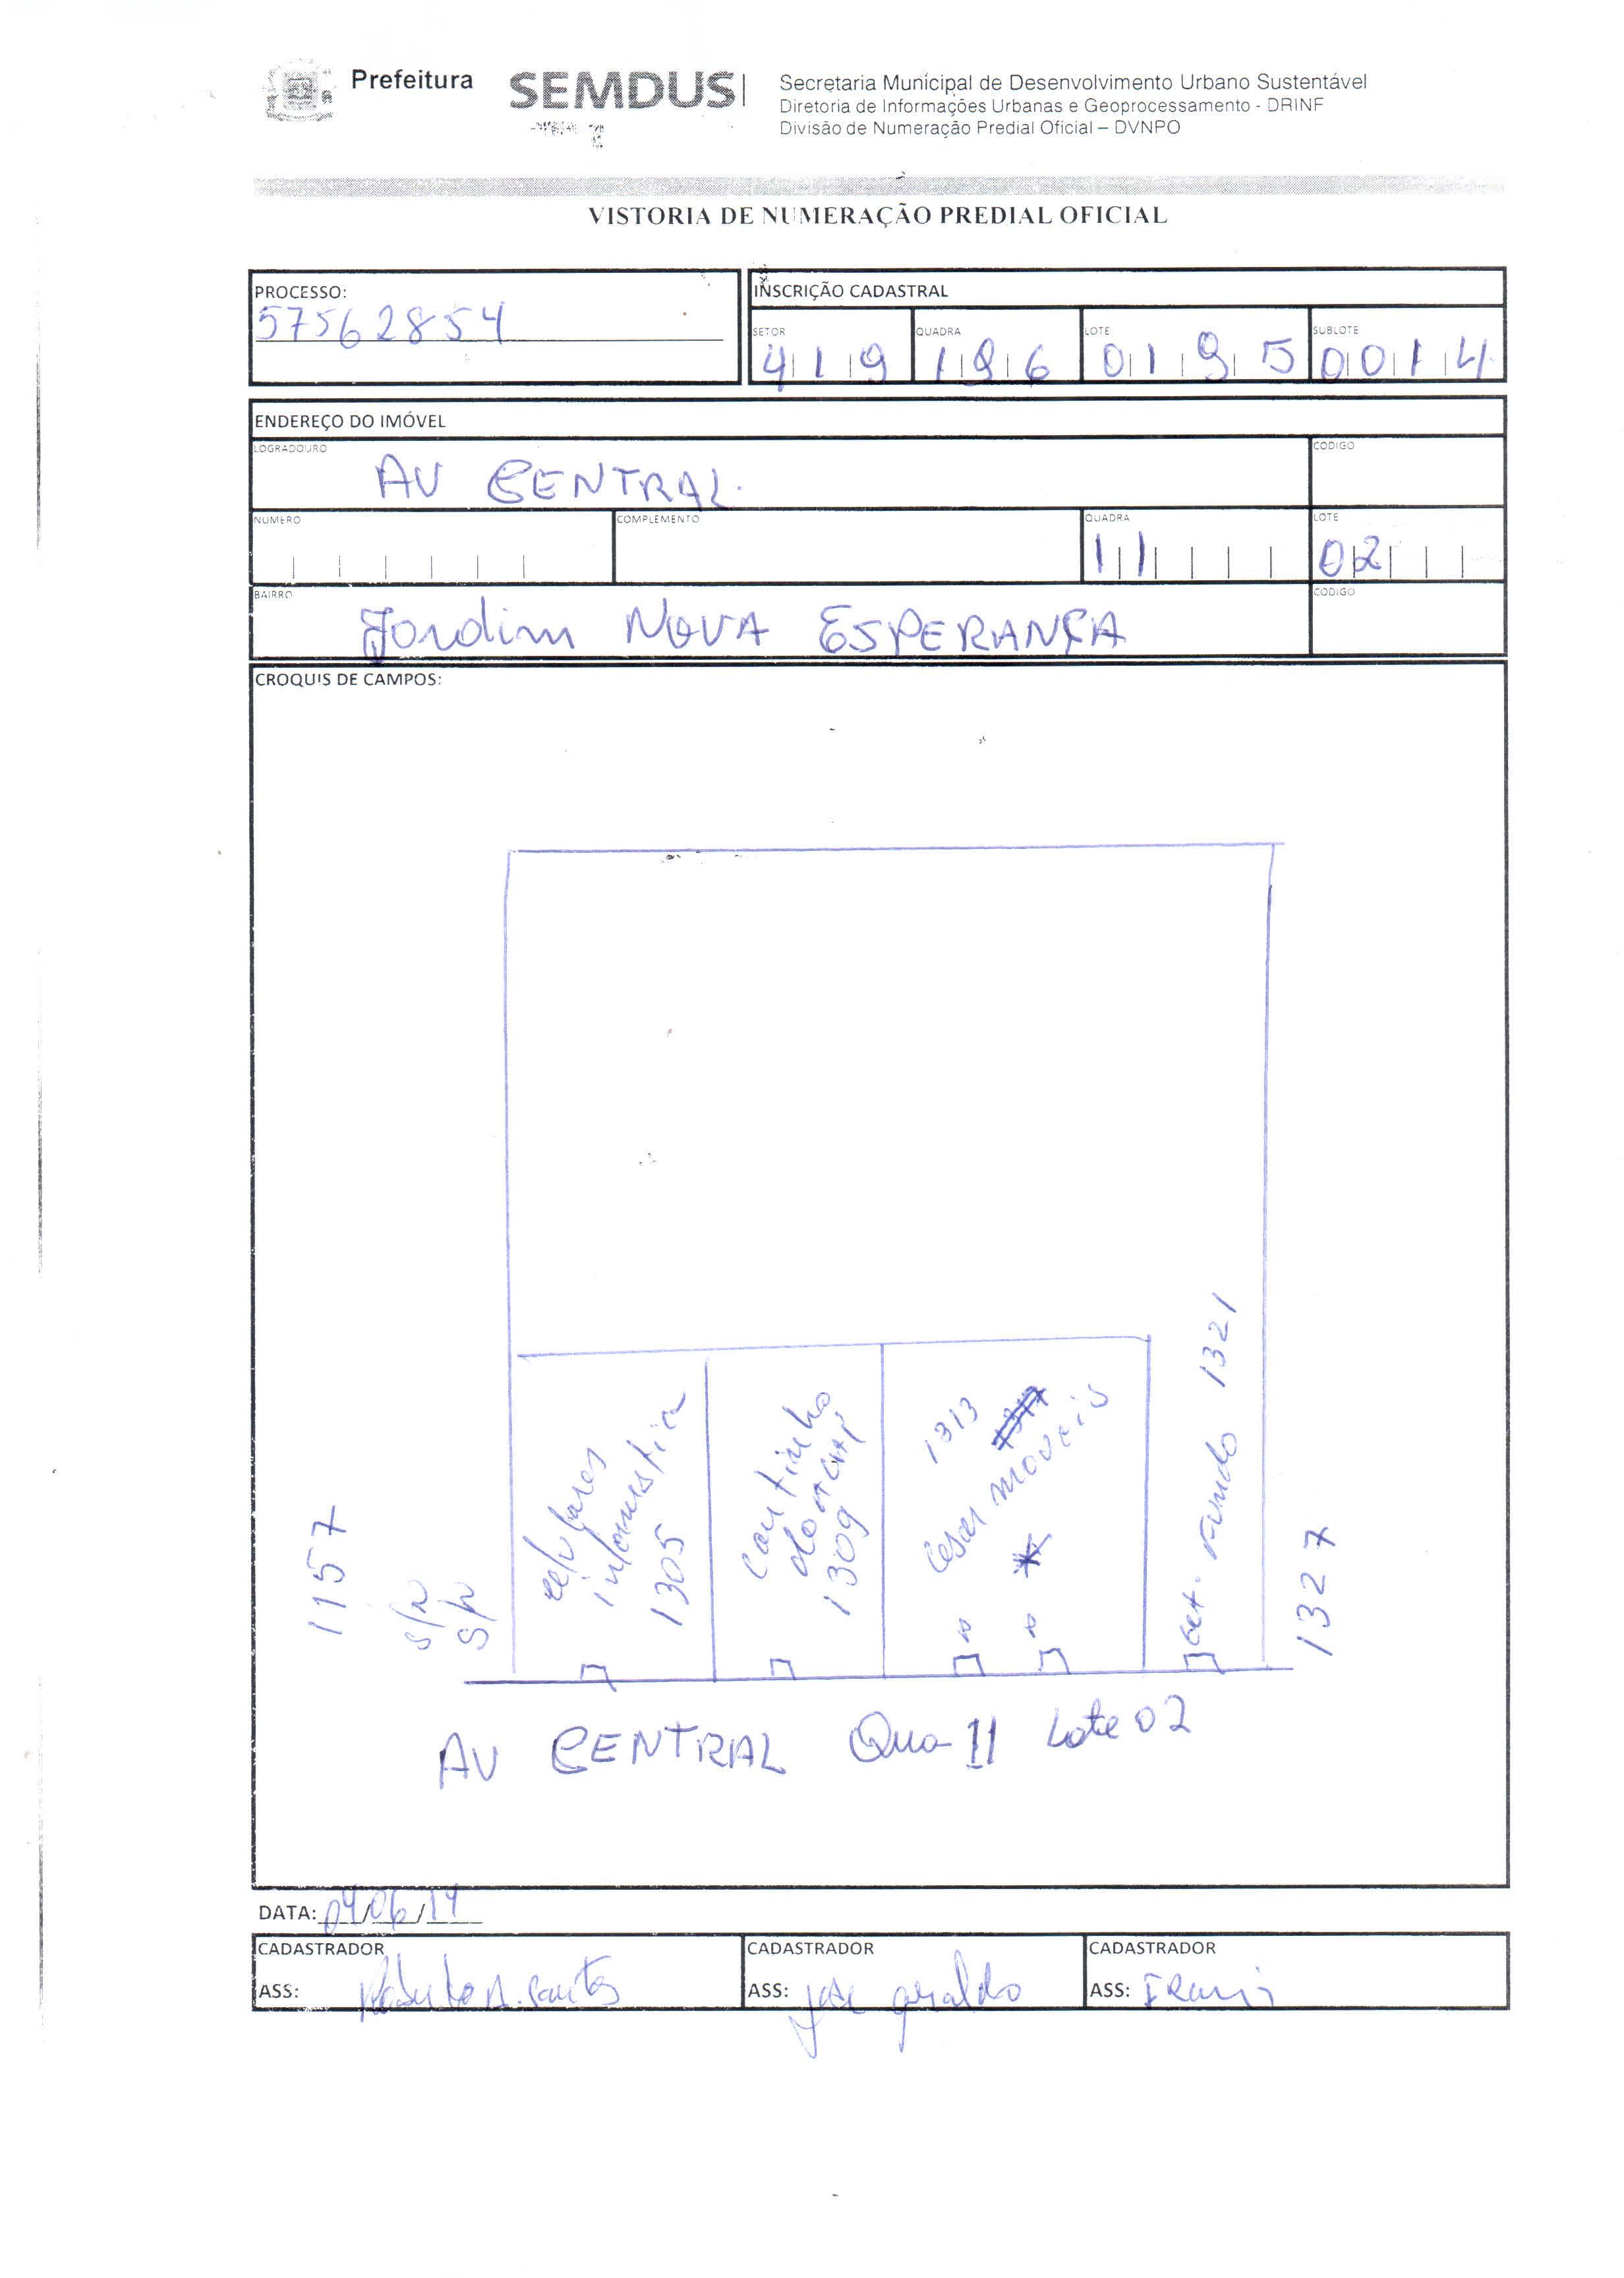 Prefeitura
SEMDUS
Secretaria Municipal de Desenvolvimento Urbano Sustentável
Diretoria de Informações Urbanas e Geoprocessamento - DRINF
Divisão de Numeração Predial Oficial – DVNPO
VISTORIA DE NUMERAÇÃO PREDIAL OFICIAL
PROCESSO:
57562854
INSCRIÇÃO CADASTRAL
SETOR QUADRA LOTE SUBLOTE
419 196 0195 0014
ENDEREÇO DO IMÓVEL
LOGRADOURO CODIGO
AV CENTRAL
NUMERO COMPLEMENTO QUADRA LOTE
11 02
BAIRRO CODIGO
Jardim NOVA ESPERANÇA
CROQUIS DE CAMPOS:
1157
S/N
S/N
celulares
informatica
1305
cantinho
do
1309
1313
Cesar moveis
Fundo 1321
1327
AV CENTRAL Qua 11 Lote 02
DATA: 04/06/14
CADASTRADOR CADASTRADOR CADASTRADOR
ASS: ASS: José Geraldo ASS: